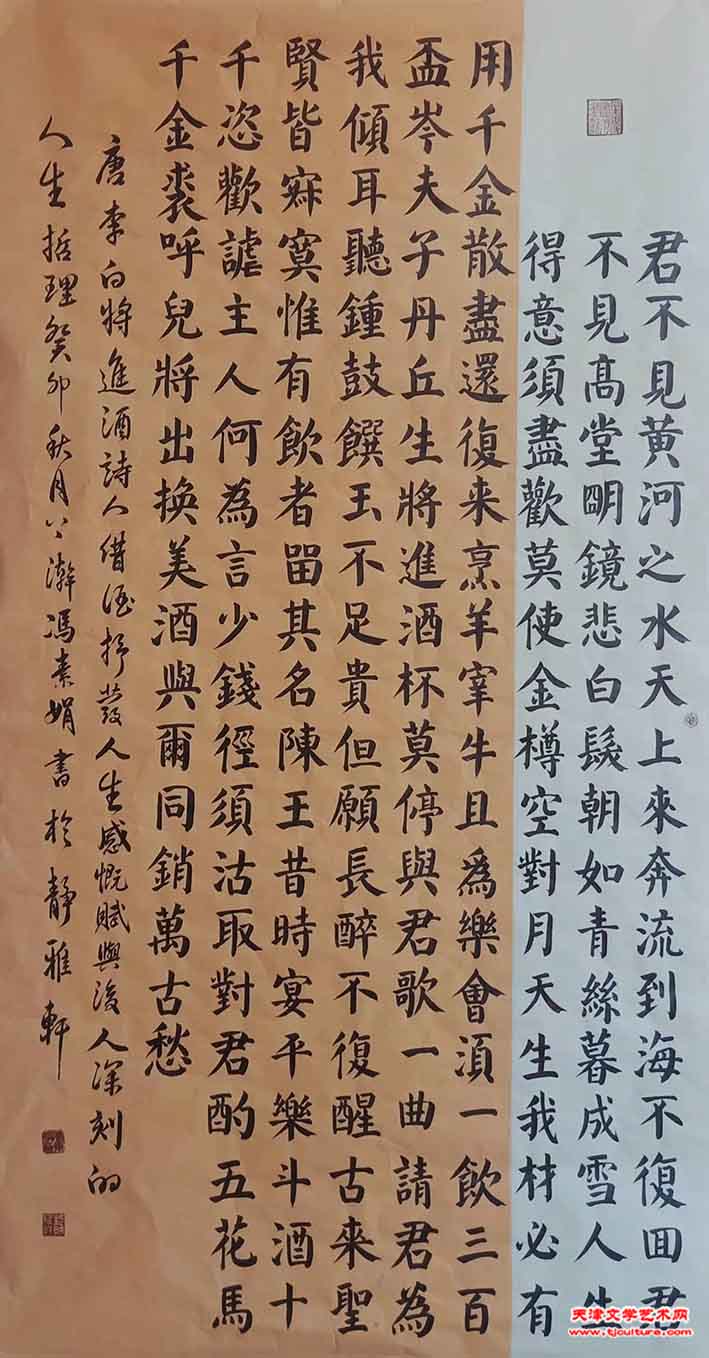 君不見黄河之水天上來奔流到海不復囬君
不見髙堂朙鏡悲白髮朝如青絲暮成雪人生
得意須盡歡莫使金樽空對月天生我材必有
用千金散盡還復来烹羊宰牛且爲樂會須一飲三百
盃岑夫子丹丘生將進酒杯莫停與君歌一曲請君為
我傾耳聽鍾鼓饌玉不足貴但願長醉不復醒古来聖
賢皆寂寞惟有飲者畱其名陳王昔時宴平樂斗酒十
千恣歡謔主人何為言少錢徑須沽取對君酌五花馬
千金裘呼兒將出換美酒與爾同銷萬古愁
唐李白將進酒詩人借酒抒發人生感慨賦與後人深刻的
人生哲理癸卯秋月上澣馮素娟書於靜雅軒
天津文学艺术网
www.tjculture.com